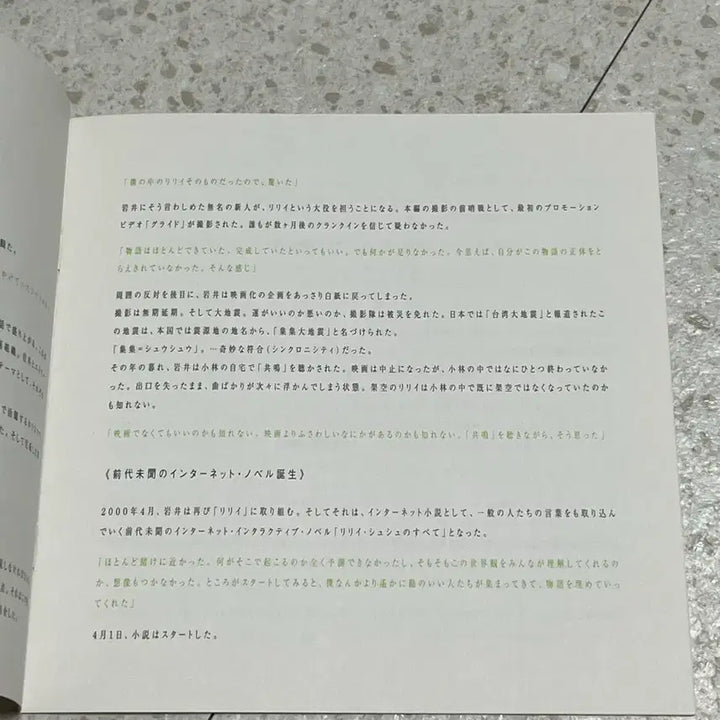 「僕の中のリリイそのものだったので、驚いた」
岩井にそう言わしめた無名の新人が、リリイという大役を担うことになる。本編の撮影の前哨戦として、最初のプロモーション
ビデオ「グライド」が撮影された。誰もが数ヶ月後のクランクインを信じて疑わなかった。
「物語はほとんどできていた。完成していたといってもいい。でも何かが足りなかった。今思えば、自分がこの物語の正体をと
らえきれていなかった。そんな感じ」
周囲の反対を後目に、岩井は映画化の企画をあっさり白紙に戻ってしまった。
撮影は無期延期。そして大地震。運がいいのか悪いのか、撮影隊は被災を免れた。日本では「台湾大地震」と報道されたこ
の地震は、本国では震源地の地名から、「集集大地震」と名づけられた。
「集集＝シュウシュウ」。…奇妙な符合(シンクロニシティ)だった。
その年の暮れ、岩井は小林の自宅で「共鳴」を聴かされた。映画は中止になったが、小林の中ではなにひとつ終わっていなか
った。出口を失ったまま、曲ばかりが次々に浮かんでしまう状態。架空のリリイは小林の中で既に架空ではなくなっていたのか
も知れない。
「映画でなくてもいいのかも知れない。映画よりふさわしいなにかがあるのかも知れない。「共鳴」を聴きながら、そう思った」
《前代未聞のインターネット・ノベル誕生》
2000年4月、岩井は再び「リリイ」に取り組む。そしてそれは、インターネット小説として、一般の人たちの言葉をも取り込ん
でいく前代未聞のインターネット・インタラクティブ・ノベル「リリイ・シュシュのすべて」となった。
「ほとんど賭けに近かった。何がそこで起こるのか全く予測できなかったし、そもそもこの世界観をみんなが理解してくれるの
か、想像もつかなかった。ところがスタートしてみると、僕なんかより遥かに勘のいい人たちが集まってきて、物語を埋めていっ
てくれた」
4月1日、小説はスタートした。